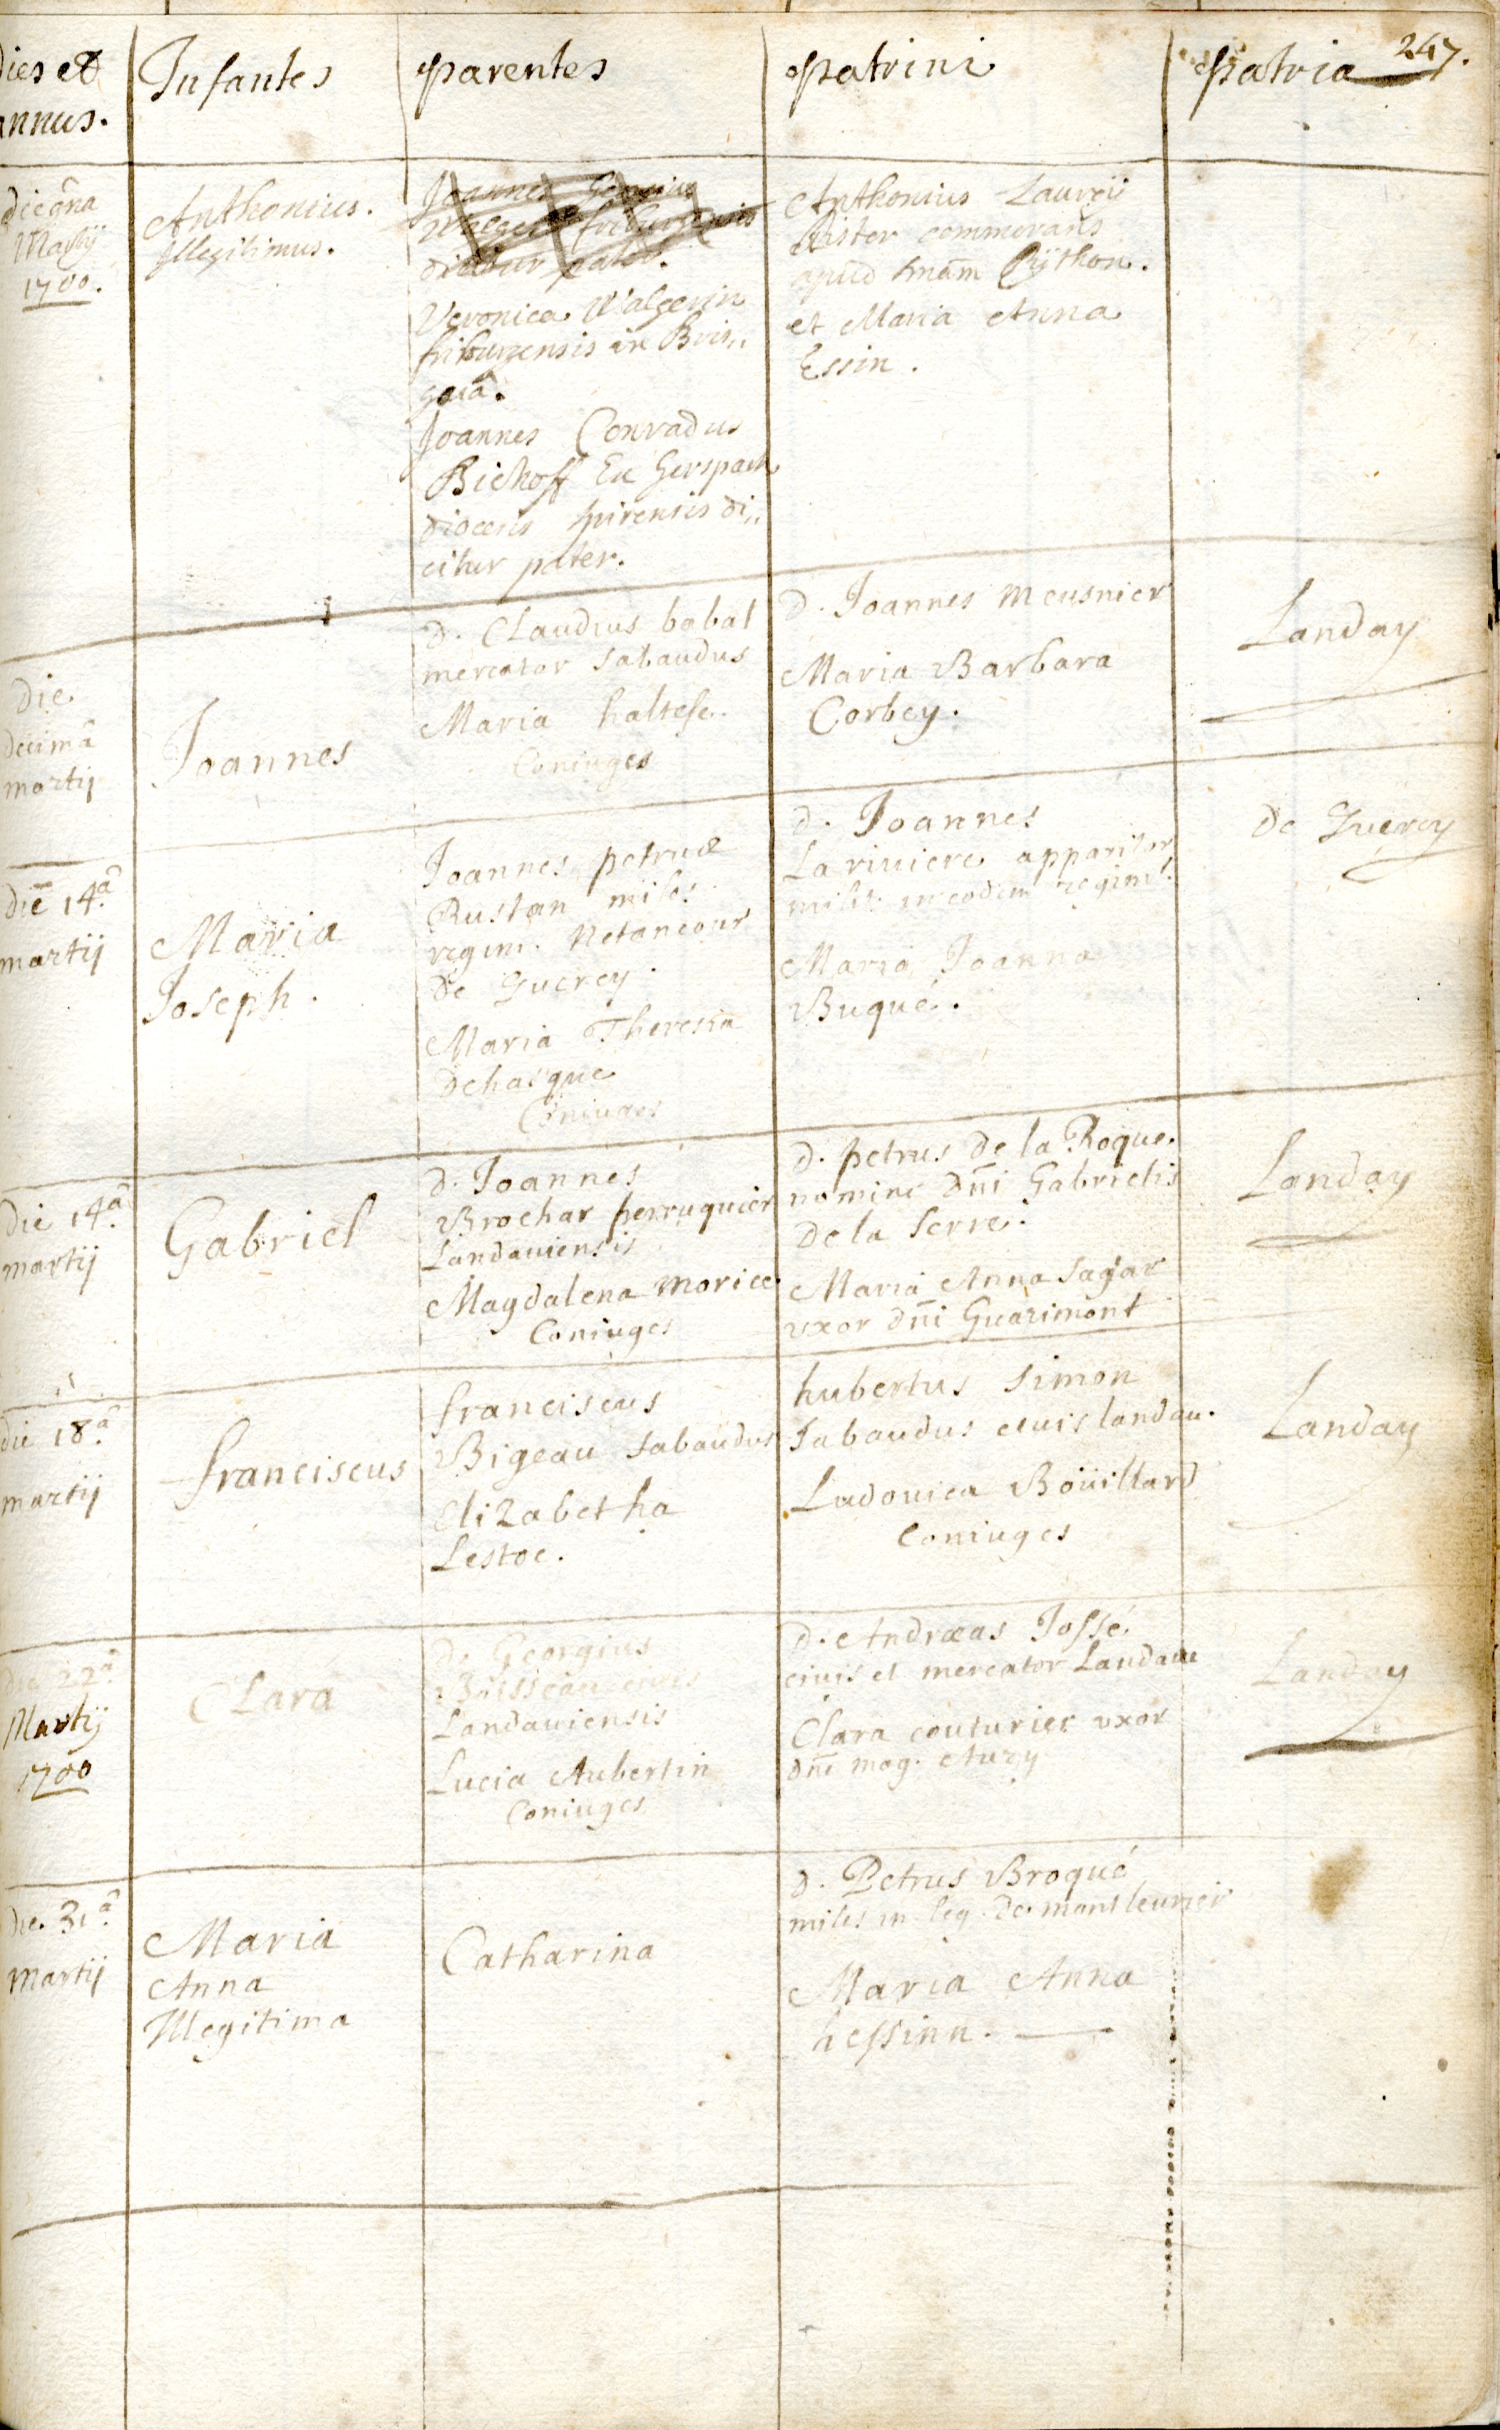 247.
dies et
annus.
Infantes
parentes
patrini
patria
Martij
1700.
Anthonius.
Illegitimus.
Joannes
dicitur pater.
Veronica Walgerin
friburgensis in Bris„
goiâ.
Joannes Conradus
Bichoff Ex Gerspach
diocesis spirensis di„
citur pater.
Anthonius Laurÿ
pistor commorans
apud
et Maria Anna
Essin.
die
decimâ
martij
Joannes
d. Claudius babal
mercator sabaudus
Maria haltese.
Coniuges
d. Joannes meusnier
Maria Barbara
Corbey.
Landay
die 14.â
martij
Maria
Joseph.
Joannes petrus
Rustan miles
regim. Netancour
de Quercy.
Maria Theresia
dehasque
Coniuges
d. Joannes
Lariuiere apparitor
milit. in eodem regim.
Maria Joanna
Buqué.
de Quercy
die 14.â
martij
Gabriel
d. Joannes
Brochar perruquier
Landauiensis
Magdalena morice.
Coniuges
d. petrus de la Roque.
nomine dn̄i Gabrielis
de la serre.
Maria Anna sagar
uxor dn̄i Guarimont
Landay
die 18.â
martij
franciscus
franciscus
Bigeau sabaudus
Elizabetha
Lestoc.
hubertus simon
sabaudus ciuis landau.
Ludouica Boüillard
Coniuges
Landay
die 22.â
Martij
1700
Clara
d. Georgius
Boisseau ciuis
Landauiensis
Lucia Aubertin
Coniuges
d. Andræas Jossé
ciuis et mercator Landau
Clara couturier uxor
dn̄i mag. Auzy
Landay
die. 31.â
martij
Maria
Anna
Illegitima
Catharina
d. Petrus Broqué
miles in leg. de montleurier
Maria Anna
hessinn.